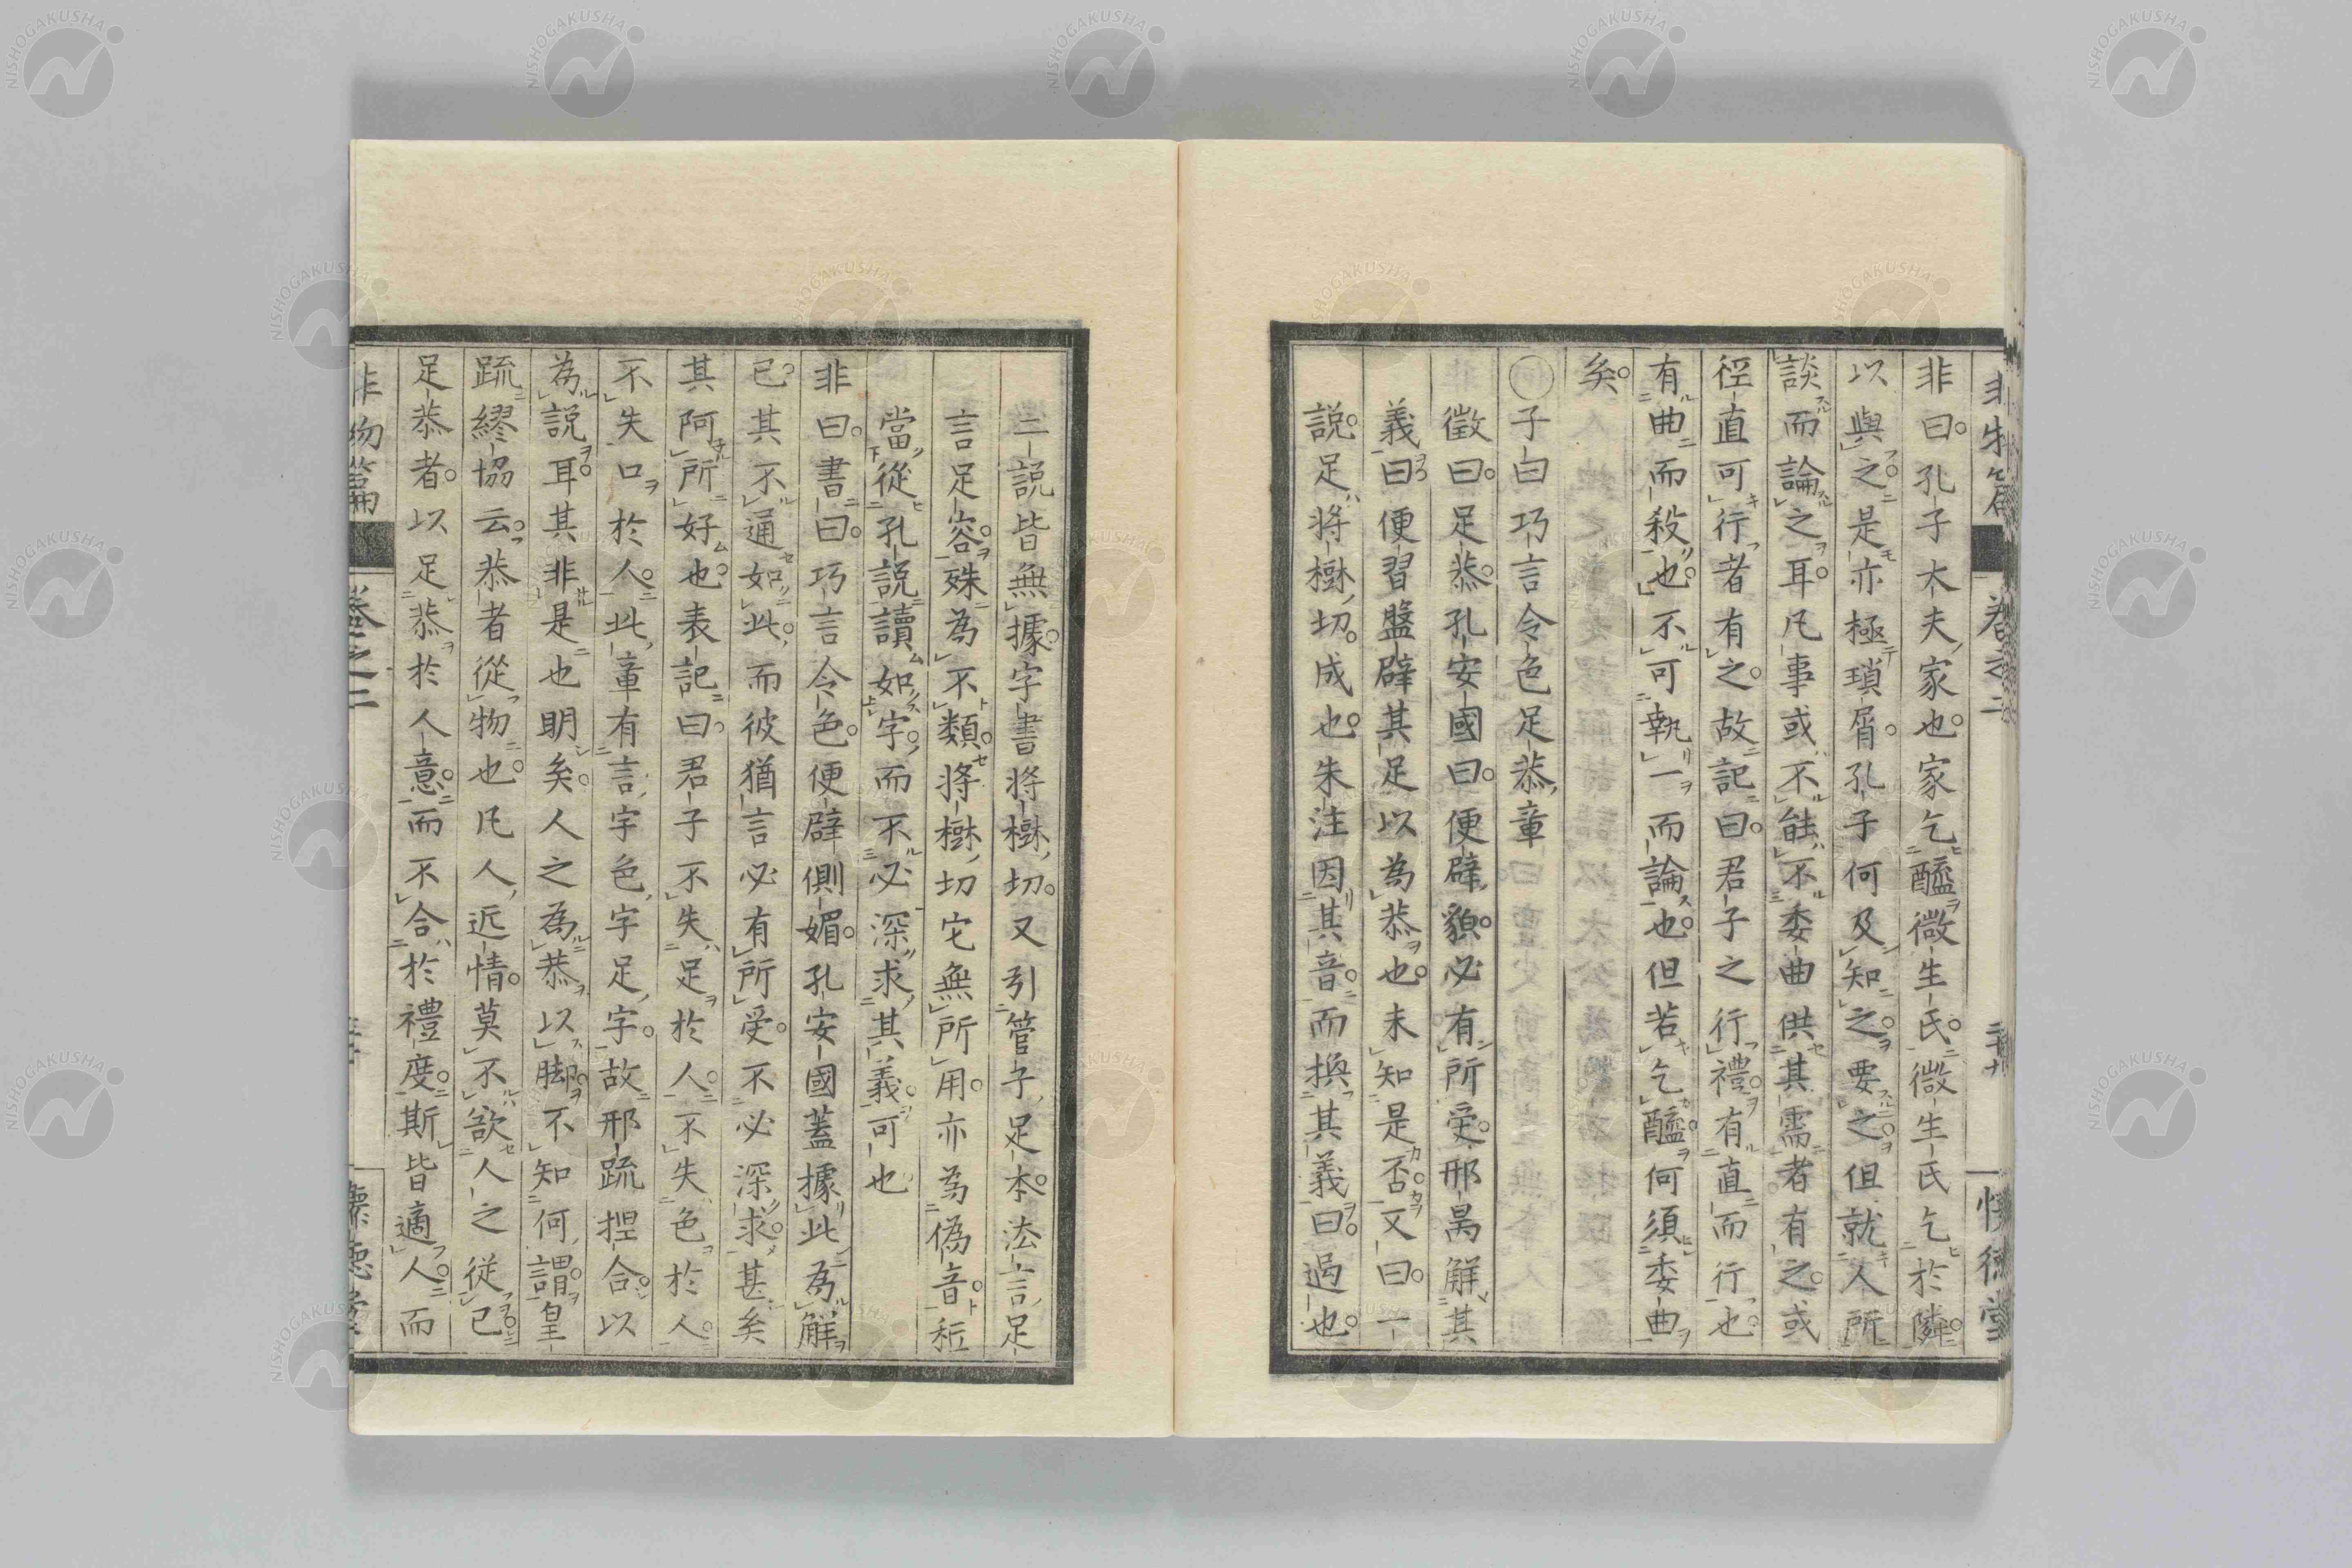 非物篇 卷之二 懷德堂
非曰孔子大夫家也家乞醯微生氏微生氏乞於隣
以與之是亦極瑣屑孔子何及知之要之但就人所
談而論之耳凡事或不能不委曲供其需者有之或
徑直可行者有之故記曰君子之行禮有直而行也
有曲而殺也不可執一而論也但若乞醯何須委曲
矣
○子曰巧言令色足恭章
徵曰足恭孔安國曰便辟貌必有所受邢昺解其
義曰便習盤辟其足以為恭也未知是否又曰一
說足將樹切成也朱注因其音而換其義曰過也
二說皆無據字書將樹切又引管子足本法言足
言足容殊為不類將樹切它無所用亦為偽音秖
當從孔說讀如字而不必深求其義可也
非曰書曰巧言令色便辟側媚孔安國蓋據此為解
已其不通如此而彼猶言必有所受不必深求甚矣
其阿所好也表記曰君子不失足於人不失色於人
不失口於人此章有言字色字足字故邢疏捏合以
為說耳其非是也明矣人之為恭以脚不知何謂皇
疏繆協云恭者從物也凡人近情莫不欲人之從己
足恭者以足恭於人意而不合於禮度斯皆適人而
非物篇 卷之二 懷德堂